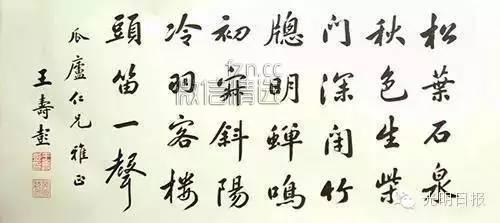 松葉石泉
秋色生柴
門深閉竹
牕明蟬鳴
初寂斜陽
冷羽客楼
頭笛一聲
瓜廬仁兄雅正
王壽彭
fzn.cc
微信精选
光明日报